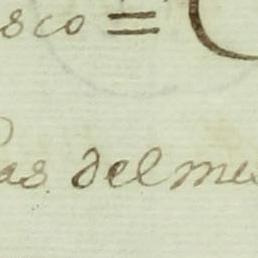 sco =
as del mes